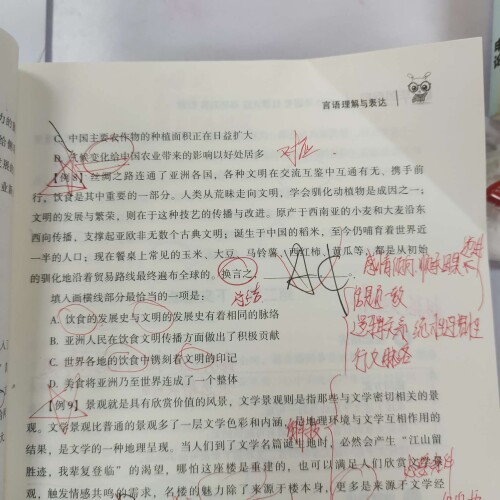 言语理解与表达
C. 中国主要农作物的种植面积正在日益扩大
D. 气候变化给中国农业带来的影响以好处居多
对应
【例8】丝绸之路连通了亚洲各国，各种文明在交流互鉴中互通有无、携手前
行，饮食是其中重要的一部分。人类从荒昧走向文明，学会驯化动植物是成因之一；
文明的发展与繁荣，则在于这种技艺的传播与改进。原产于西南亚的小麦和大麦沿东
西向传播，支撑起亚欧非无数个古典文明；诞生于中国的稻米，至今仍哺育着世界近
一半的人口；现在餐桌上常见的玉米、大豆、马铃薯、西红柿、黄瓜等，都是从初始
的驯化地沿着贸易路线最终遍布全球的。换言之，
总结
感情倾向
填入画横线部分最恰当的一项是：
A. 饮食的发展史与文明的发展史有着相同的脉络
B. 亚洲人民在饮食文明传播方面做出了积极贡献
C. 世界各地的饮食中镌刻着文明的印记
行文脉络
D. 美食将亚洲乃至世界连成了一个整体
【例9】景观就是具有欣赏价值的风景，文学景观则是指那些与文学密切相关的景
观。文学景观比普通的景观多了一层文学色彩和内涵，是地理环境与文学互相作用的
结果，是文学的一种地理呈现。当人们到了文学名篇诞生地时，必然会产生“江山留
胜迹，我辈复登临”的渴望，哪怕这座楼是重建的，也可以满足人们欣赏文学景
观，触发情感共鸣的需求，名楼的魅力除了来源于楼本身，更多是来源于文学经